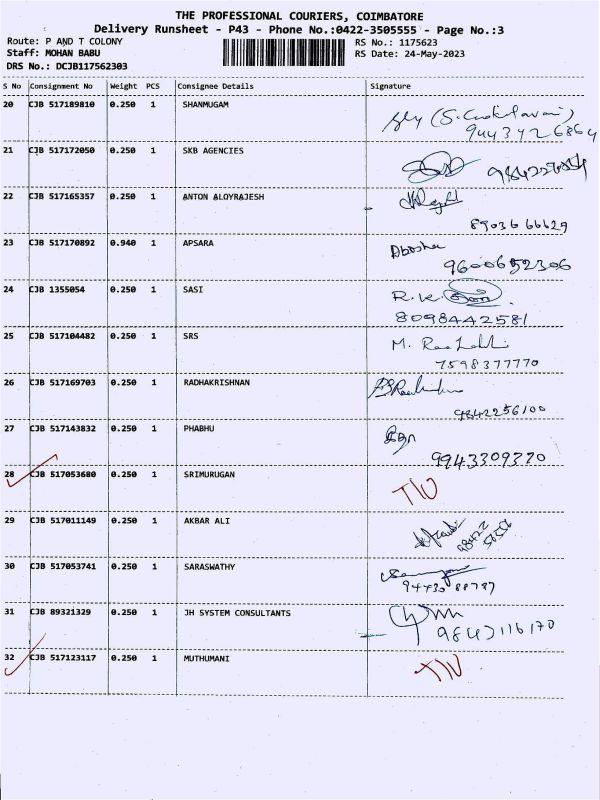 THE PROFESSIONAL COURIERS, COIMBATORE
Delivery Runsheet - P43 - Phone No.:0422-3505555 - Page No.:3
Route: P AND T COLONY
Staff: MOHAN BABU
DRS No.: DCJB117562303
RS No.: 1175623
RS Date: 24-May-2023
S No Consignment No Weight PCS Consignee Details Signature
20 CJB 517189810 0.250 1 SHANMUGAM
9443426864
21 CJB 517172050 0.250 1 SKB AGENCIES
22 CJB 517165357 0.250 1 ANTON ALOYRAJESH
8903666629
23 CJB 517170892 0.940 1 APSARA
9600652306
24 CJB 1355054 0.250 1 SASI R.K.
8098442581
25 CJB 517104482 0.250 1 SRS M.
7598377770
26 CJB 517169703 0.250 1 RADHAKRISHNAN
9842256100
27 CJB 517143832 0.250 1 PHABHU
9943309370
28 CJB 517053680 0.250 1 SRIMURUGAN
29 CJB 517011149 0.250 1 AKBAR ALI
30 CJB 517053741 0.250 1 SARASWATHY
31 CJB 89321329 0.250 1 JH SYSTEM CONSULTANTS
32 CJB 517123117 0.250 1 MUTHUMANI